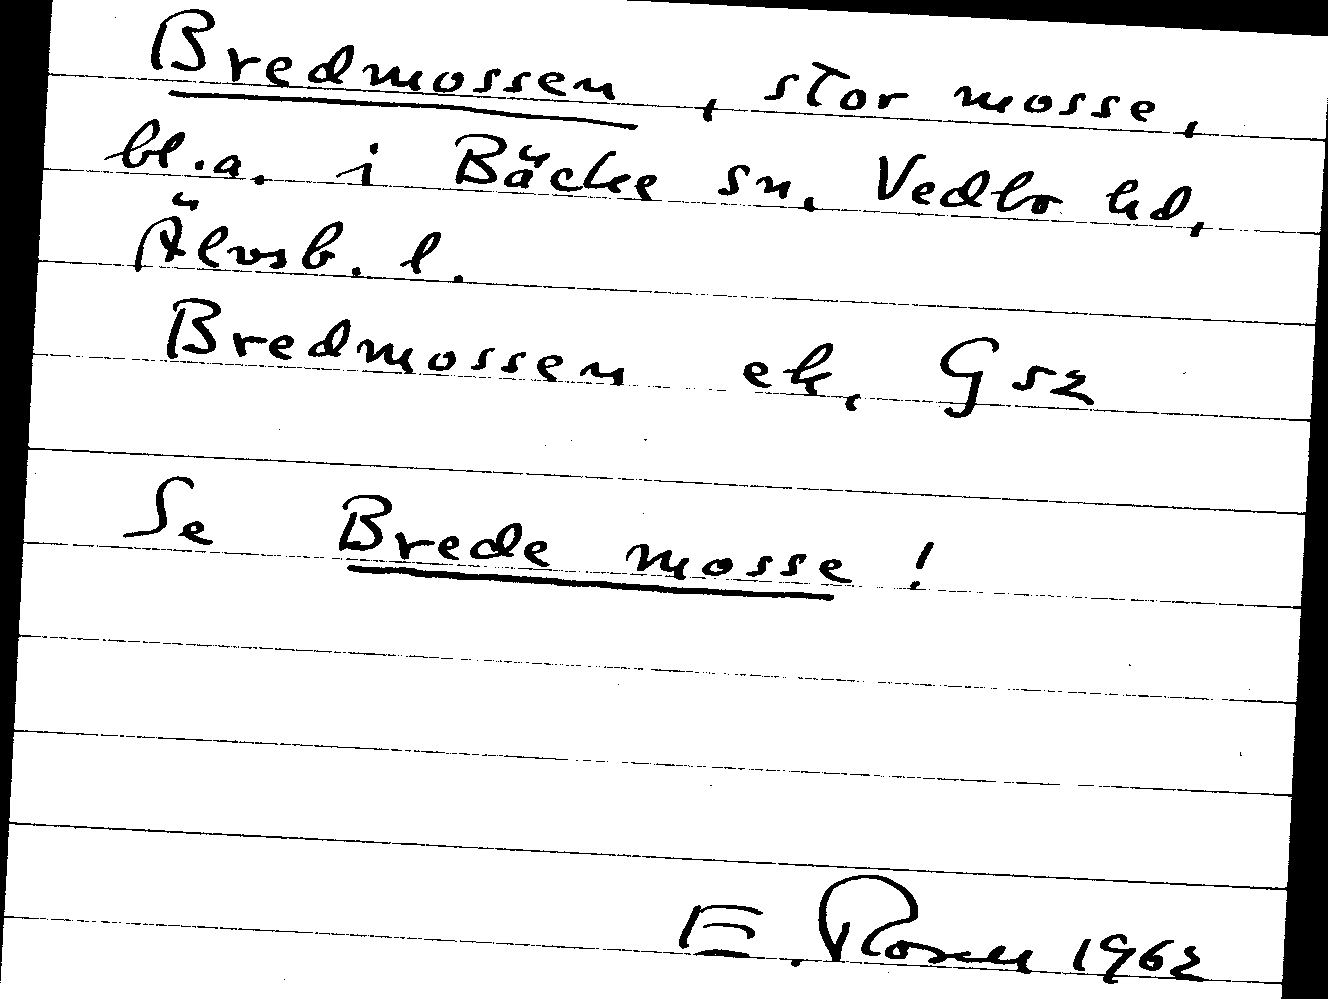 Bredmossen, stor mosse,
bl.a. i Bäcke sn, Vedbo hd,
Älvsb. l.
Bredmossen ek, Gsz
Se Brede mosse!
E. Rosell 1962